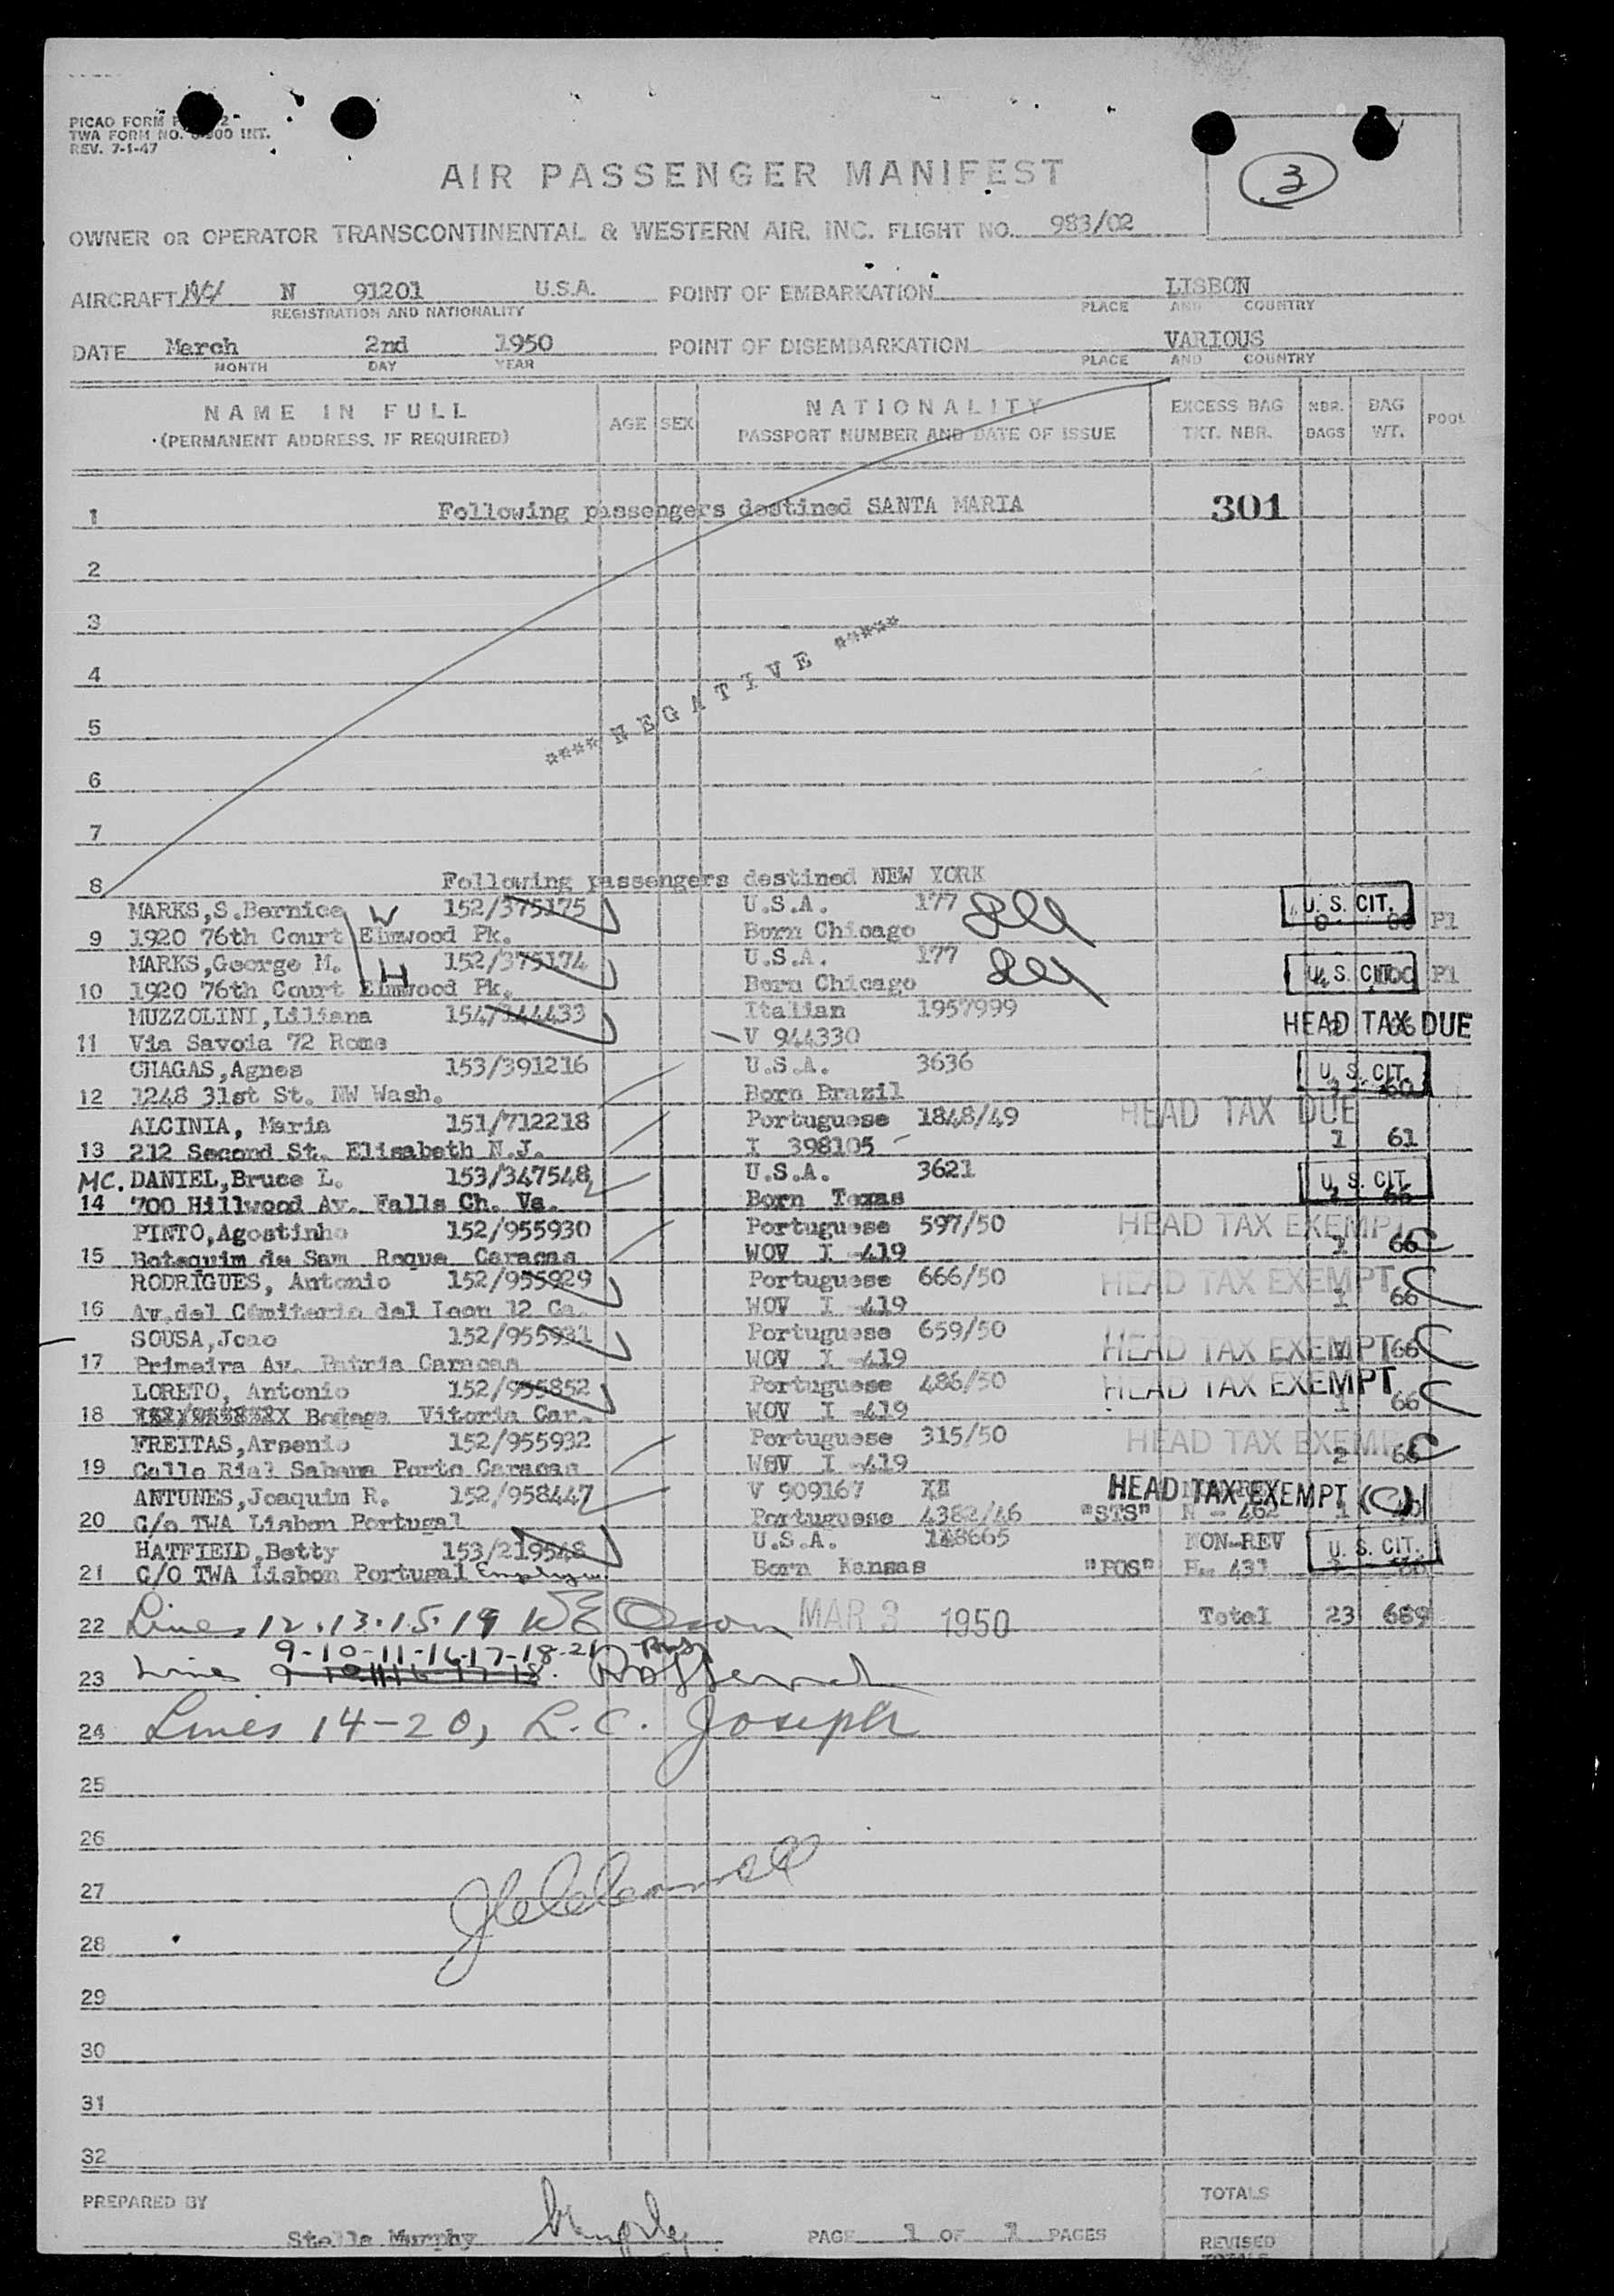 PICAO FORM
TWA FORM NO. INT.
REV. 7-1-47
3
AIR PASSENGER MANIFEST
OWNER OR OPERATOR TRANSCONTINENTAL & WESTERN AIR, INC. FLIGHT NO. 983/02
AIRCRAFT N 91201 U.S.A. POINT OF EMBARKATION LISBON
REGISTRATION AND NATIONALITY PLACE AND COUNTRY
DATE March 2nd 1950 POINT OF DISEMBARKATION VARIOUS
MONTH DAY YEAR PLACE AND COUNTRY
NAME IN FULL AGE SEX NATIONALITY EXCESS BAG NBR. BAG POOL
(PERMANENT ADDRESS, IF REQUIRED) PASSPORT NUMBER AND DATE OF ISSUE TKT. NBR. BAGS WT.
1 Following passengers destined SANTA MARIA 301
2
3
4
**** NEGATIVE *****
5
6
7
8 Following passengers destined NEW YORK
MARKS,S.Bernice W 152/375175 U.S.A. 177 U.S. CIT.
9 1920 76th Court Elmwood Pk. Born Chicago P1
MARKS,George M. H 152/375174 U.S.A. 177 U.S. CIT. P1
10 1920 76th Court Elmwood Pk. Born Chicago
MUZZOLINI,Liliana 154/144433 Italian 1957999 HEAD TAX DUE
11 Via Savoia 72 Rome V 944330
CHAGAS,Agnes 153/391216 U.S.A. 3636 U.S. CIT.
12 1248 31st St. NW Wash. Born Brazil
ALCINIA, Maria 151/712218 Portuguese 1848/49 HEAD TAX DUE
13 212 Second St. Elisabeth N.J. I 398105 1 61
MC. DANIEL,Bruce L. 153/347548 U.S.A. 3621 U.S. CIT.
14 700 Hillwood Av. Falls Ch. Va. Born Texas
PINTO,Agostinho 152/955930 Portuguese 597/50 HEAD TAX EXEMPT
15 Botequim de Sam Roque Caracas WOV I -419 66 C
RODRIGUES, Antonio 152/955929 Portuguese 666/50 HEAD TAX EXEMPT C
16 Av.del Cimiterio del Leon 12 Ca. WOV I -419 1 66
SOUSA,Joao 152/955931 Portuguese 659/50 HEAD TAX EXEMPT 66 C
17 Primeira Av. Patria Caracas WOV I -419
LORETO, Antonio 152/955852 Portuguese 486/50 HEAD TAX EXEMPT C
18 Bodega Vitoria Car. WOV I -419 1 66
FREITAS,Arsenio 152/955932 Portuguese 315/50 HEAD TAX EXEMPT C
19 Calle Rial Sabana Porto Caracas WOV I -419 2 66
ANTUNES,Joaquim R. 152/958447 V 909167 HEAD TAX EXEMPT (C)
20 C/o TWA Lisbon Portugal Portuguese 4382/46 "STS" N - 462 1
HATFIELD,Betty 153/219548 U.S.A. 148665 NON-REV U.S. CIT.
21 C/O TWA Lisbon Portugal Born Kansas "POS" 431
22 Lines 12.13.15.19 MAR 3 1950 Total 23 689
9-10-11-16-17-18-21
23 Lines
24 Lines 14-20, L.C. Joseph
25
26
27
28
29
30
31
32
PREPARED BY TOTALS
Stella Murphy PAGE 1 OF 1 PAGES REVISED
TOTALS